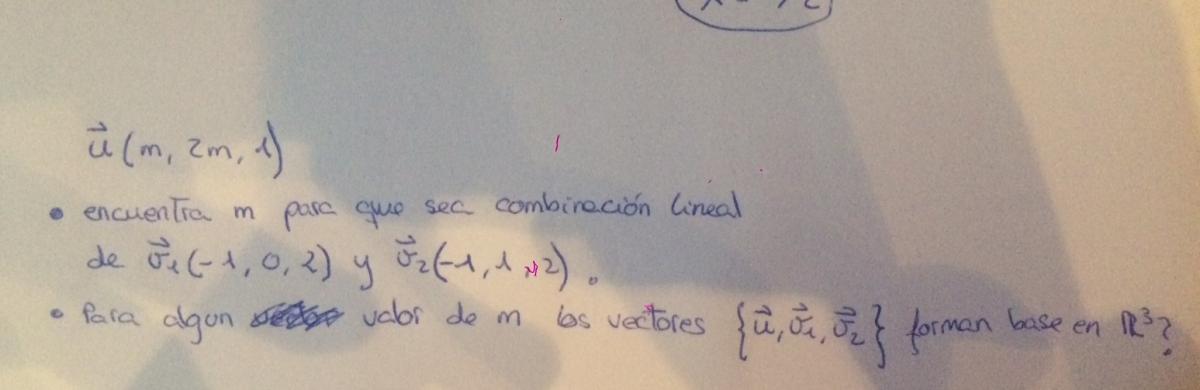 u⃗ (m, 2m, 1)
• encuentra m para que sea combinación lineal
de v⃗₁(-1, 0, 2) y v⃗₂(-1, 1, 2).
• Para algun valor de m los vectores {u⃗, v⃗₁, v⃗₂} forman base en ℝ³?